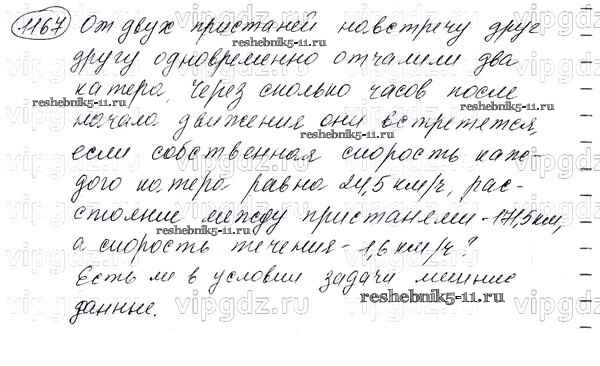 1167 От двух пристаней навстречу друг
другу одновременно отчалили два
катера. Через сколько часов после
начала движения они встретятся,
если собственная скорость каж-
дого катера равна 24,5 км/ч, рас-
стояние между пристанями - 171,5 км,
а скорость течения - 1,6 км/ч?
Есть ли в условии задачи лишние
данные.
reshebnik5-11.ru
reshebnik5-11.ru
reshebnik5-11.ru
reshebnik5-11.ru
reshebnik5-11.ru
reshebnik5-11.ru
vipgdz.ru